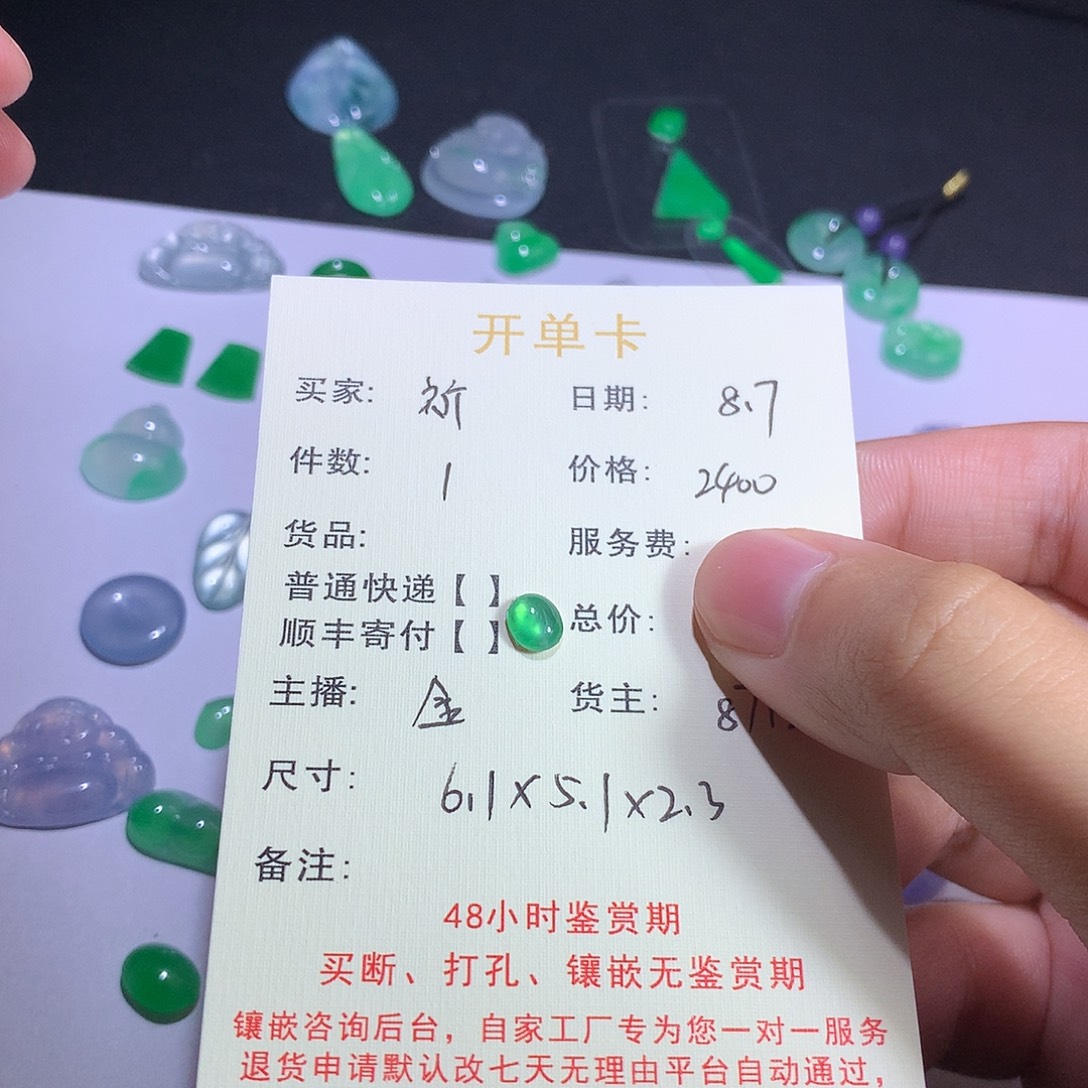 开单卡
买家: 祈 日期: 8.7
件数: 1 价格: 2400
货品: 服务费:
普通快递【 】
顺丰寄付【 】 总价:
主播: 金 货主: 87
尺寸: 6.1×5.1×2.3
备注:
48小时鉴赏期
买断、打孔、镶嵌无鉴赏期
镶嵌咨询后台，自家工厂专为您一对一服务
退货申请默认改七天无理由平台自动通过,